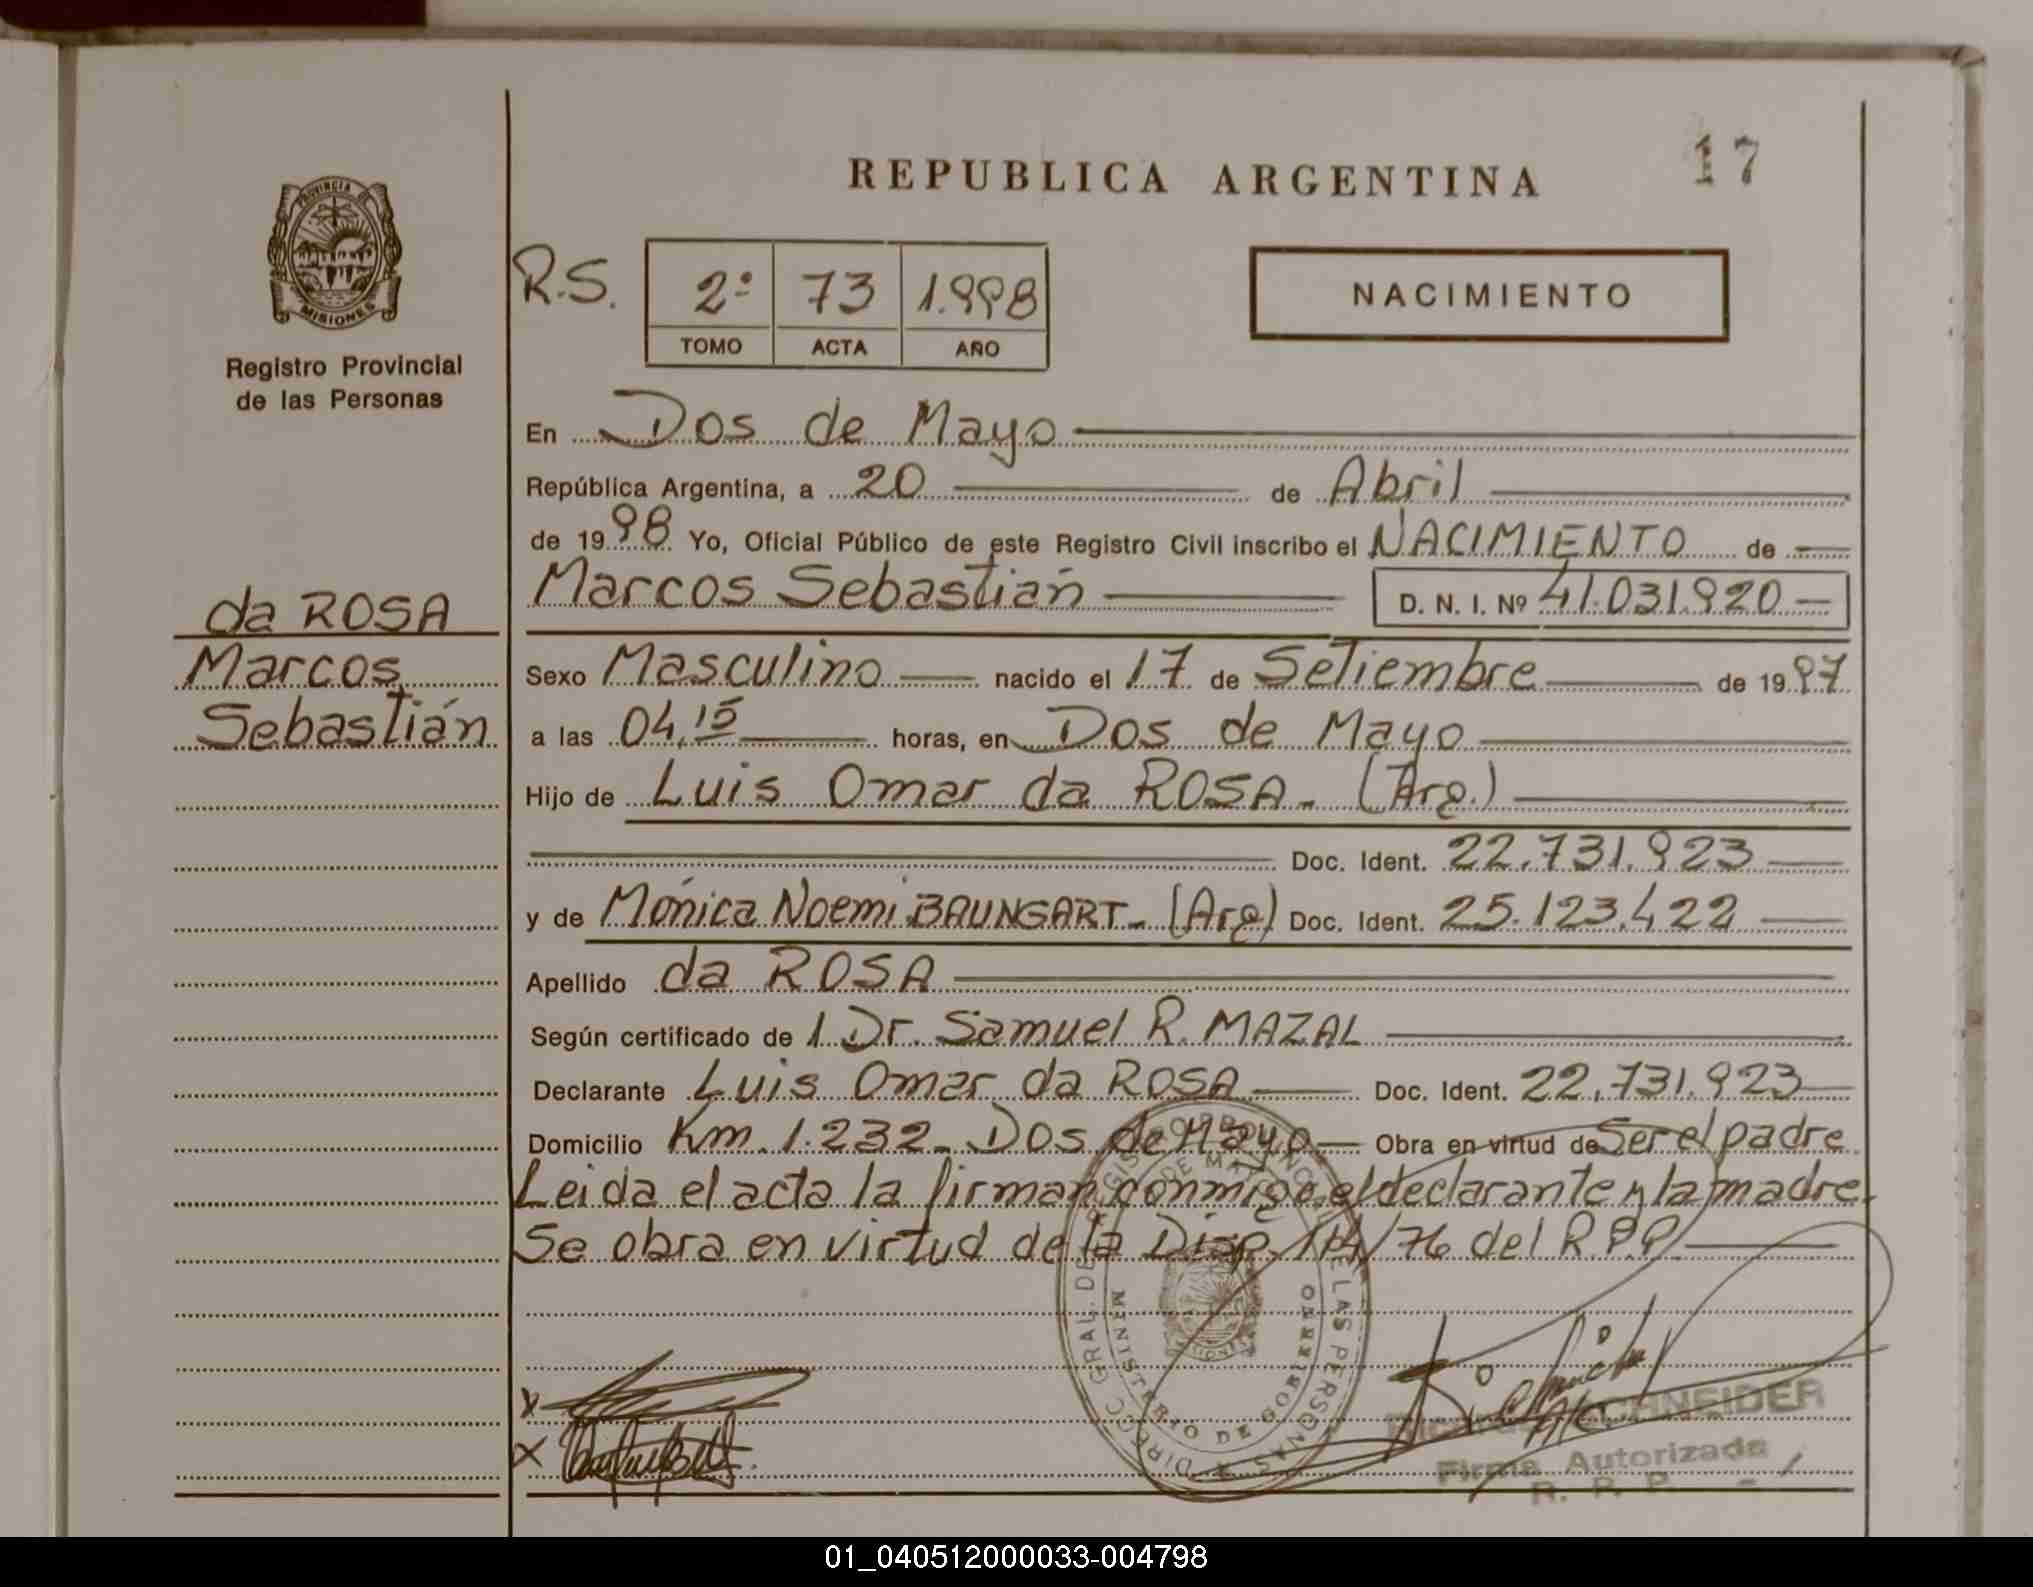 REPUBLICA ARGENTINA
17
PROVINCIA DE
MISIONES
Registro Provincial
de las Personas
R.S.
2º 73 1.998
TOMO ACTA AÑO
NACIMIENTO
En Dos de Mayo
República Argentina, a 20 de Abril
de 1998 Yo, Oficial Público de este Registro Civil inscribo el NACIMIENTO de
Marcos Sebastián D. N. I. Nº 41.031.920
da ROSA
Marcos
Sebastián
Sexo Masculino nacido el 17 de Setiembre de 1997
a las 04,15 horas, en Dos de Mayo
Hijo de Luis Omar da ROSA. (Arg.)
Doc. Ident. 22.731.923
y de Mónica Noemi BAUNGART. (Arg) Doc. Ident. 25.123.422
Apellido da ROSA
Según certificado de 1 Dr. Samuel R. MAZAL
Declarante Luis Omar da ROSA Doc. Ident. 22.731.923
Domicilio Km. 1.232. Dos de Mayo Obra en virtud de Ser el padre
Leida el acta la firman conmigo el declarante y la madre.
Se obra en virtud de la Disp. 114/76 del R.P.P.
DIRECC. GRAL. DE REGISTRO PROVINCIAL DE LAS PERSONAS
MINISTERIO DE GOBIERNO
SCHNEIDER
Firma Autorizada
R. P. P.
01_040512000033-004798